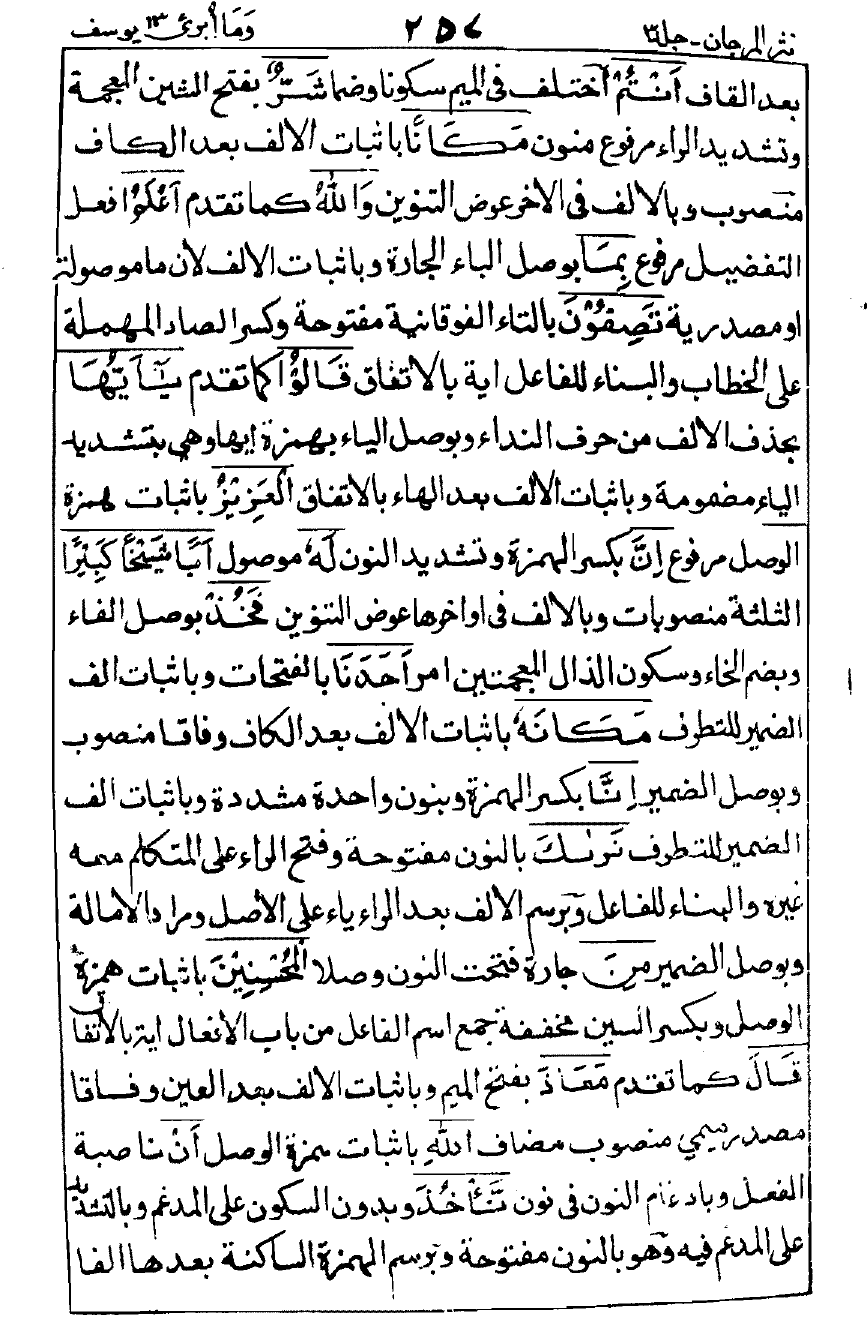 نثر المرجان - جلد٣ ٢٥٧ وَمَا أبرئ ١٣ يوسف
بعد القاف اَنْتُمْ اختلف فى الميم سكونا وضما شَرٌّ بفتح الشين المعجمة
وتشديد الراء مرفوع منون مَكَانًا باثبات الالف بعد الكاف
منصوب وبالالف فى الاخر عوض التنوين وَاللّٰهُ كما تقدم اَعْلَمُ افعل
التفضيل مرفوع بِمَا بوصل الباء الجارة وباثبات الالف لان ما موصولة
او مصدرية تَصِفُوْنَ بالتاء الفوقانية مفتوحة وكسر الصاد المهملة
على الخطاب والبناء للفاعل اية بالاتفاق قَالُوْا كما تقدم يٰٓاَيُّهَا
بحذف الالف من حرف النداء وبوصل الياء بهمزة ايها وهى بتشديد
الياء مضمومة وباثبات الالف بعد الهاء بالاتفاق الْعَزِيْزُ باثبات همزة
الوصل مرفوع اِنَّ بكسر الهمزة وتشديد النون لَهٗ موصول اَبًا شَيْخًا كَبِيْرًا
الثلثة منصوبات وبالالف فى اواخرها عوض التنوين فَخُذْ بوصل الفاء
وبضم الخاء وسكون الذال المعجمتين امر اَحَدَنَا بالفتحات وباثبات الف
الضمير للتطرف مَكَانَهٗ باثبات الالف بعد الكاف وفاقا منصوب
وبوصل الضمير اِنَّا بكسر الهمزة وبنون واحدة مشددة وباثبات الف
الضمير للتطرف نَرٰىكَ بالنون مفتوحة وفتح الراء على المتكلم معه
غيره والبناء للفاعل وبرسم الالف بعد الراء ياء على الأصل ومراد الامالة
وبوصل الضمير مِنَ جارة فتحت النون وصلا الْمُحْسِنِيْنَ باثبات همزة
الوصل وبكسر السين مخففة جمع اسم الفاعل من باب الافعال اية بالاتفاق
قَالَ كما تقدم مَعَاذَ بفتح الميم وباثبات الالف بعد العين وفاقا
مصدر ميمي منصوب مضاف اللّٰهِ باثبات همزة الوصل اَنْ ناصبة
الفعل وبادغام النون فى نون نَّاْخُذَ وبدون السكون على المدغم وبالتشديد
على المدغم فيه وهو بالنون مفتوحة وبرسم الهمزة الساكنة بعدها الفا